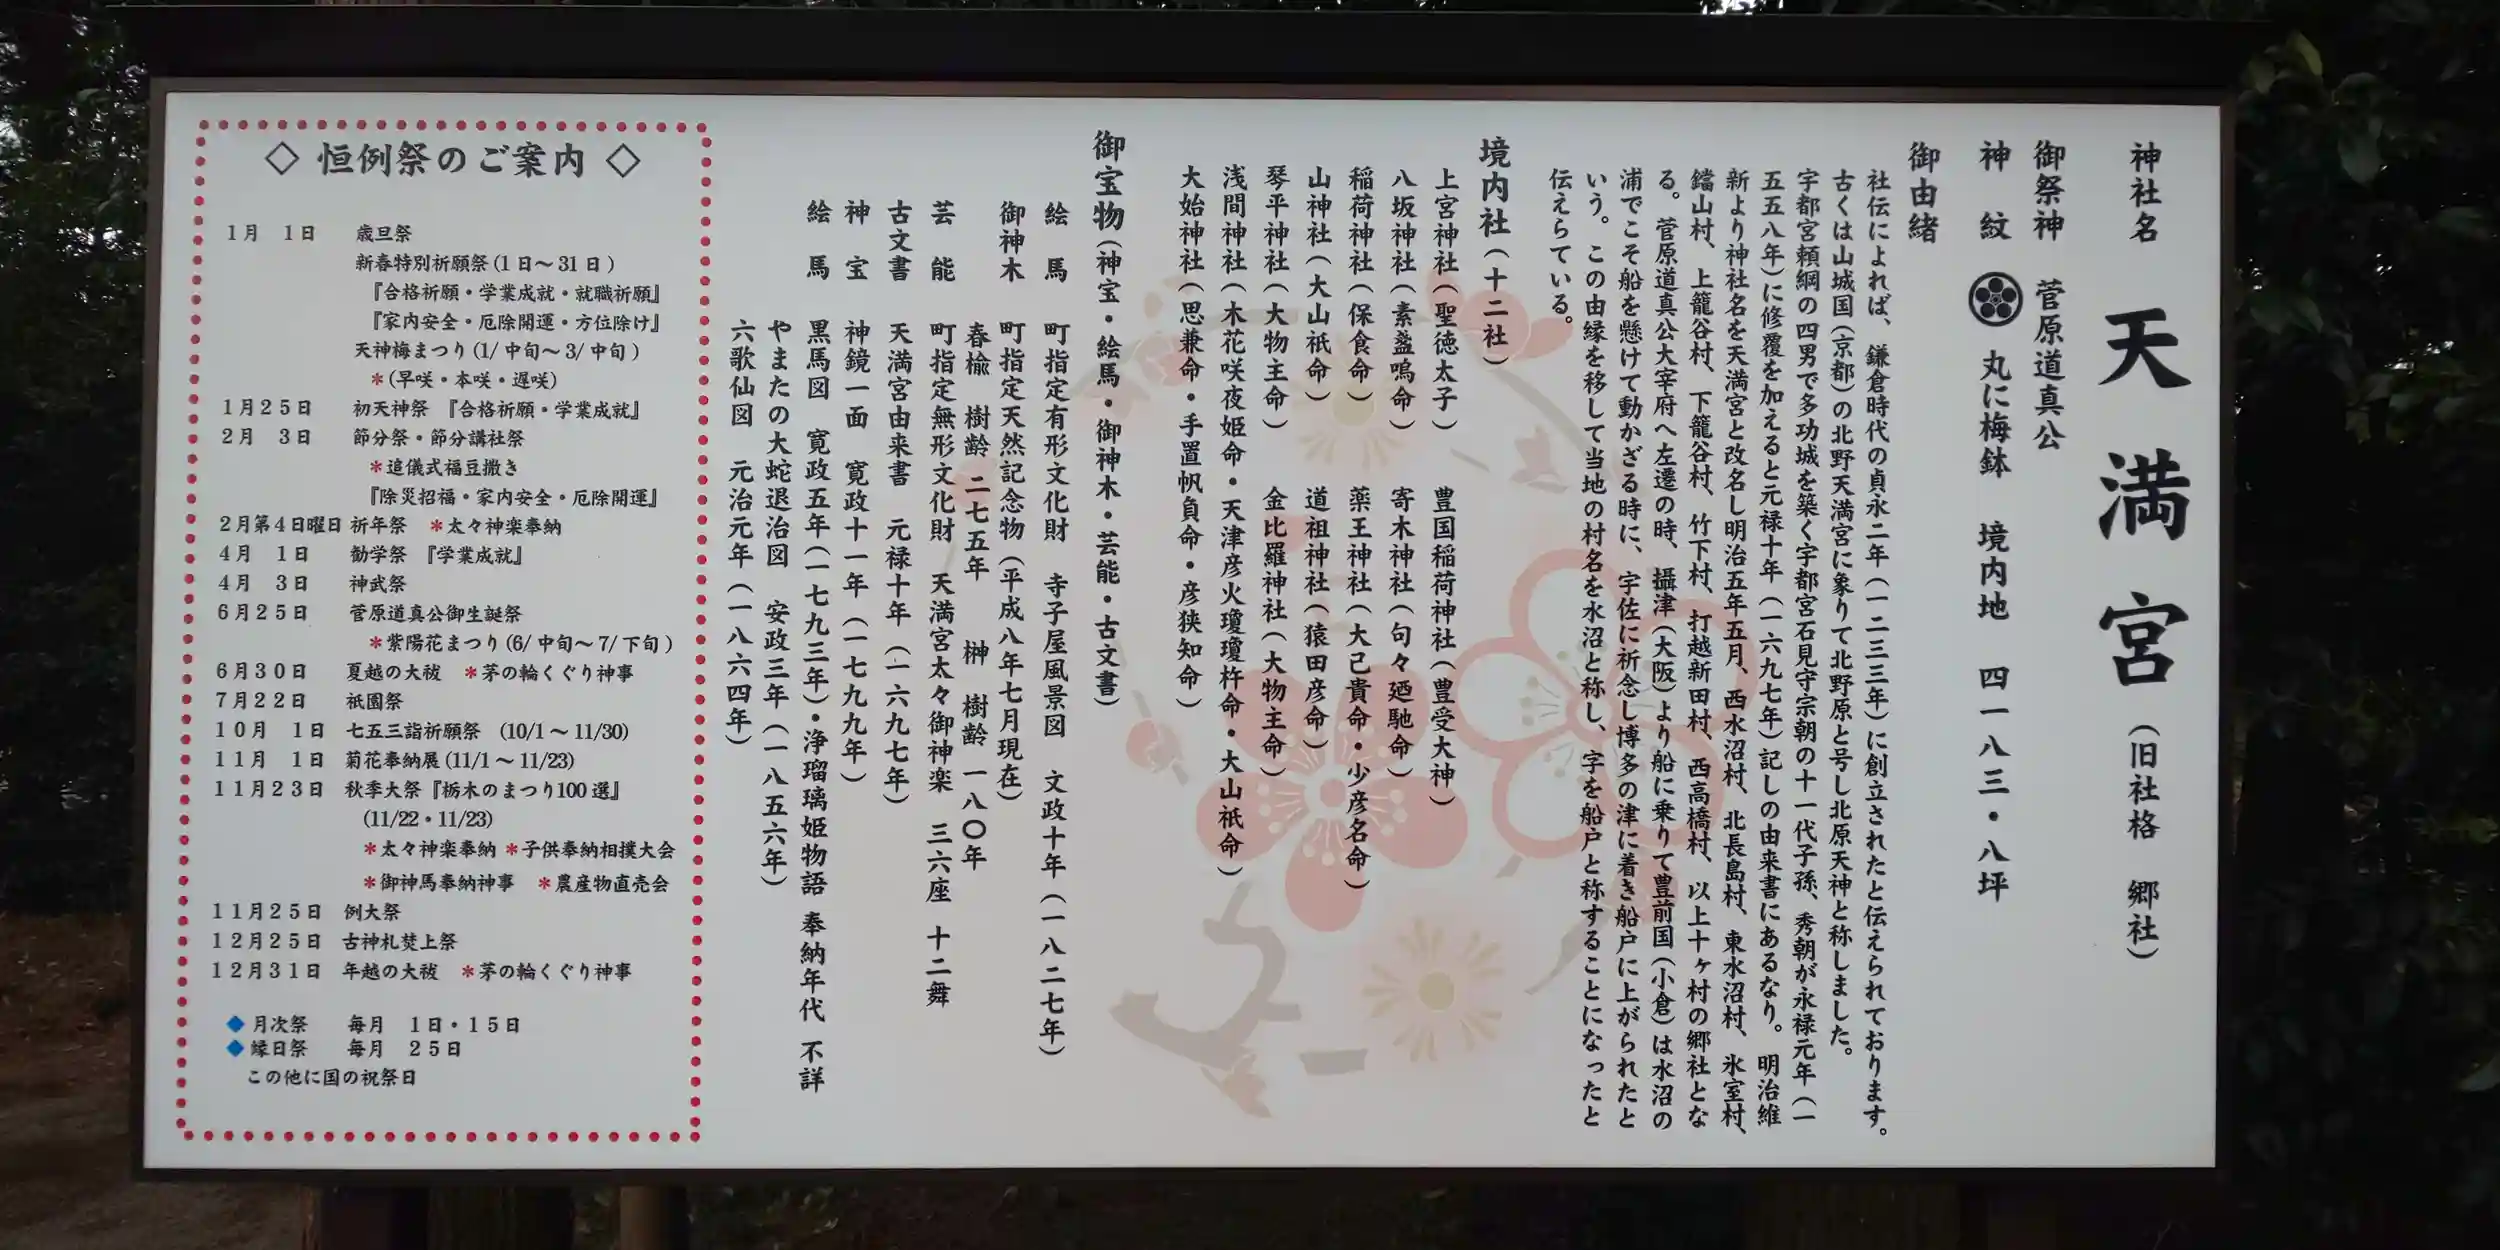 神社名　天満宮（旧社格　郷社）
御祭神　菅原道真公
神　紋　丸に梅鉢　境内地　四一八三・八坪
御由緒
社伝によれば、鎌倉時代の貞永二年（一二三三年）に創立されたと伝えられております。
古くは山城国（京都）の北野天満宮に象りて北野原と号し北原天神と称しました。
宇都宮頼綱の四男で多功城を築く宇都宮石見守宗朝の十一代子孫、秀朝が永禄元年（一
五五八年）に修覆を加えると元禄十年（一六九七年）記しの由来書にあるなり。明治維
新より神社名を天満宮と改名し明治五年五月、西水沼村、北長島村、東水沼村、氷室村、
鐺山村、上籠谷村、下籠谷村、竹下村、打越新田村、西高橋村、以上十ヶ村の郷社とな
る。菅原道真公大宰府へ左遷の時、攝津（大阪）より船に乗りて豊前国（小倉）は水沼の
浦でこそ船を懸けて動かざる時に、宇佐に祈念し博多の津に着き船戸に上がられたと
いう。この由縁を移して当地の村名を水沼と称し、字を船戸と称することになったと
伝えらている。
境内社（十二社）
上宮神社（聖徳太子）　豊国稲荷神社（豊受大神）
八坂神社（素盞嗚命）　寄木神社（句々廼馳命）
稲荷神社（保食命）　薬王神社（大己貴命・少彦名命）
山神社（大山祇命）　道祖神社（猿田彦命）
琴平神社（大物主命）　金比羅神社（大物主命）
浅間神社（木花咲夜姫命・天津彦火瓊瓊杵命・大山祇命）
大始神社（思兼命・手置帆負命・彦狭知命）
御宝物（神宝・絵馬・御神木・芸能・古文書）
絵　馬　町指定有形文化財　寺子屋風景図　文政十年（一八二七年）
御神木　町指定天然記念物（平成八年七月現在）
春楡　樹齢　二七五年　榊　樹齢　一八〇年
芸　能　町指定無形文化財　天満宮太々御神楽　三六座　十二舞
古文書　天満宮由来書　元禄十年（一六九七年）
神　宝　神鏡一面　寛政十一年（一七九九年）
絵　馬　黒馬図　寛政五年（一七九三年）・浄瑠璃姫物語　奉納年代　不詳
やまたの大蛇退治図　安政三年（一八五六年）
六歌仙図　元治元年（一八六四年）
◇ 恒例祭のご案内 ◇
１月　１日　歳旦祭
新春特別祈願祭(１日～31日)
『合格祈願・学業成就・就職祈願』
『家内安全・厄除開運・方位除け』
天神梅まつり(1/中旬～3/中旬)
＊(早咲・本咲・遅咲)
１月２５日　初天神祭　『合格祈願・学業成就』
２月　３日　節分祭・節分講社祭
＊追儀式福豆撒き
『除災招福・家内安全・厄除開運』
２月第４日曜日 祈年祭　＊太々神楽奉納
４月　１日　勧学祭　『学業成就』
４月　３日　神武祭
６月２５日　菅原道真公御生誕祭
＊紫陽花まつり(6/中旬～7/下旬)
６月３０日　夏越の大祓　＊茅の輪くぐり神事
７月２２日　祇園祭
１０月　１日　七五三詣祈願祭　(10/1～11/30)
１１月　１日　菊花奉納展(11/1～11/23)
１１月２３日　秋季大祭『栃木のまつり100選』
(11/22・11/23)
＊太々神楽奉納 ＊子供奉納相撲大会
＊御神馬奉納神事　＊農産物直売会
１１月２５日　例大祭
１２月２５日　古神札焚上祭
１２月３１日　年越の大祓　＊茅の輪くぐり神事
◆月次祭　毎月　１日・１５日
◆縁日祭　毎月　２５日
この他に国の祝祭日